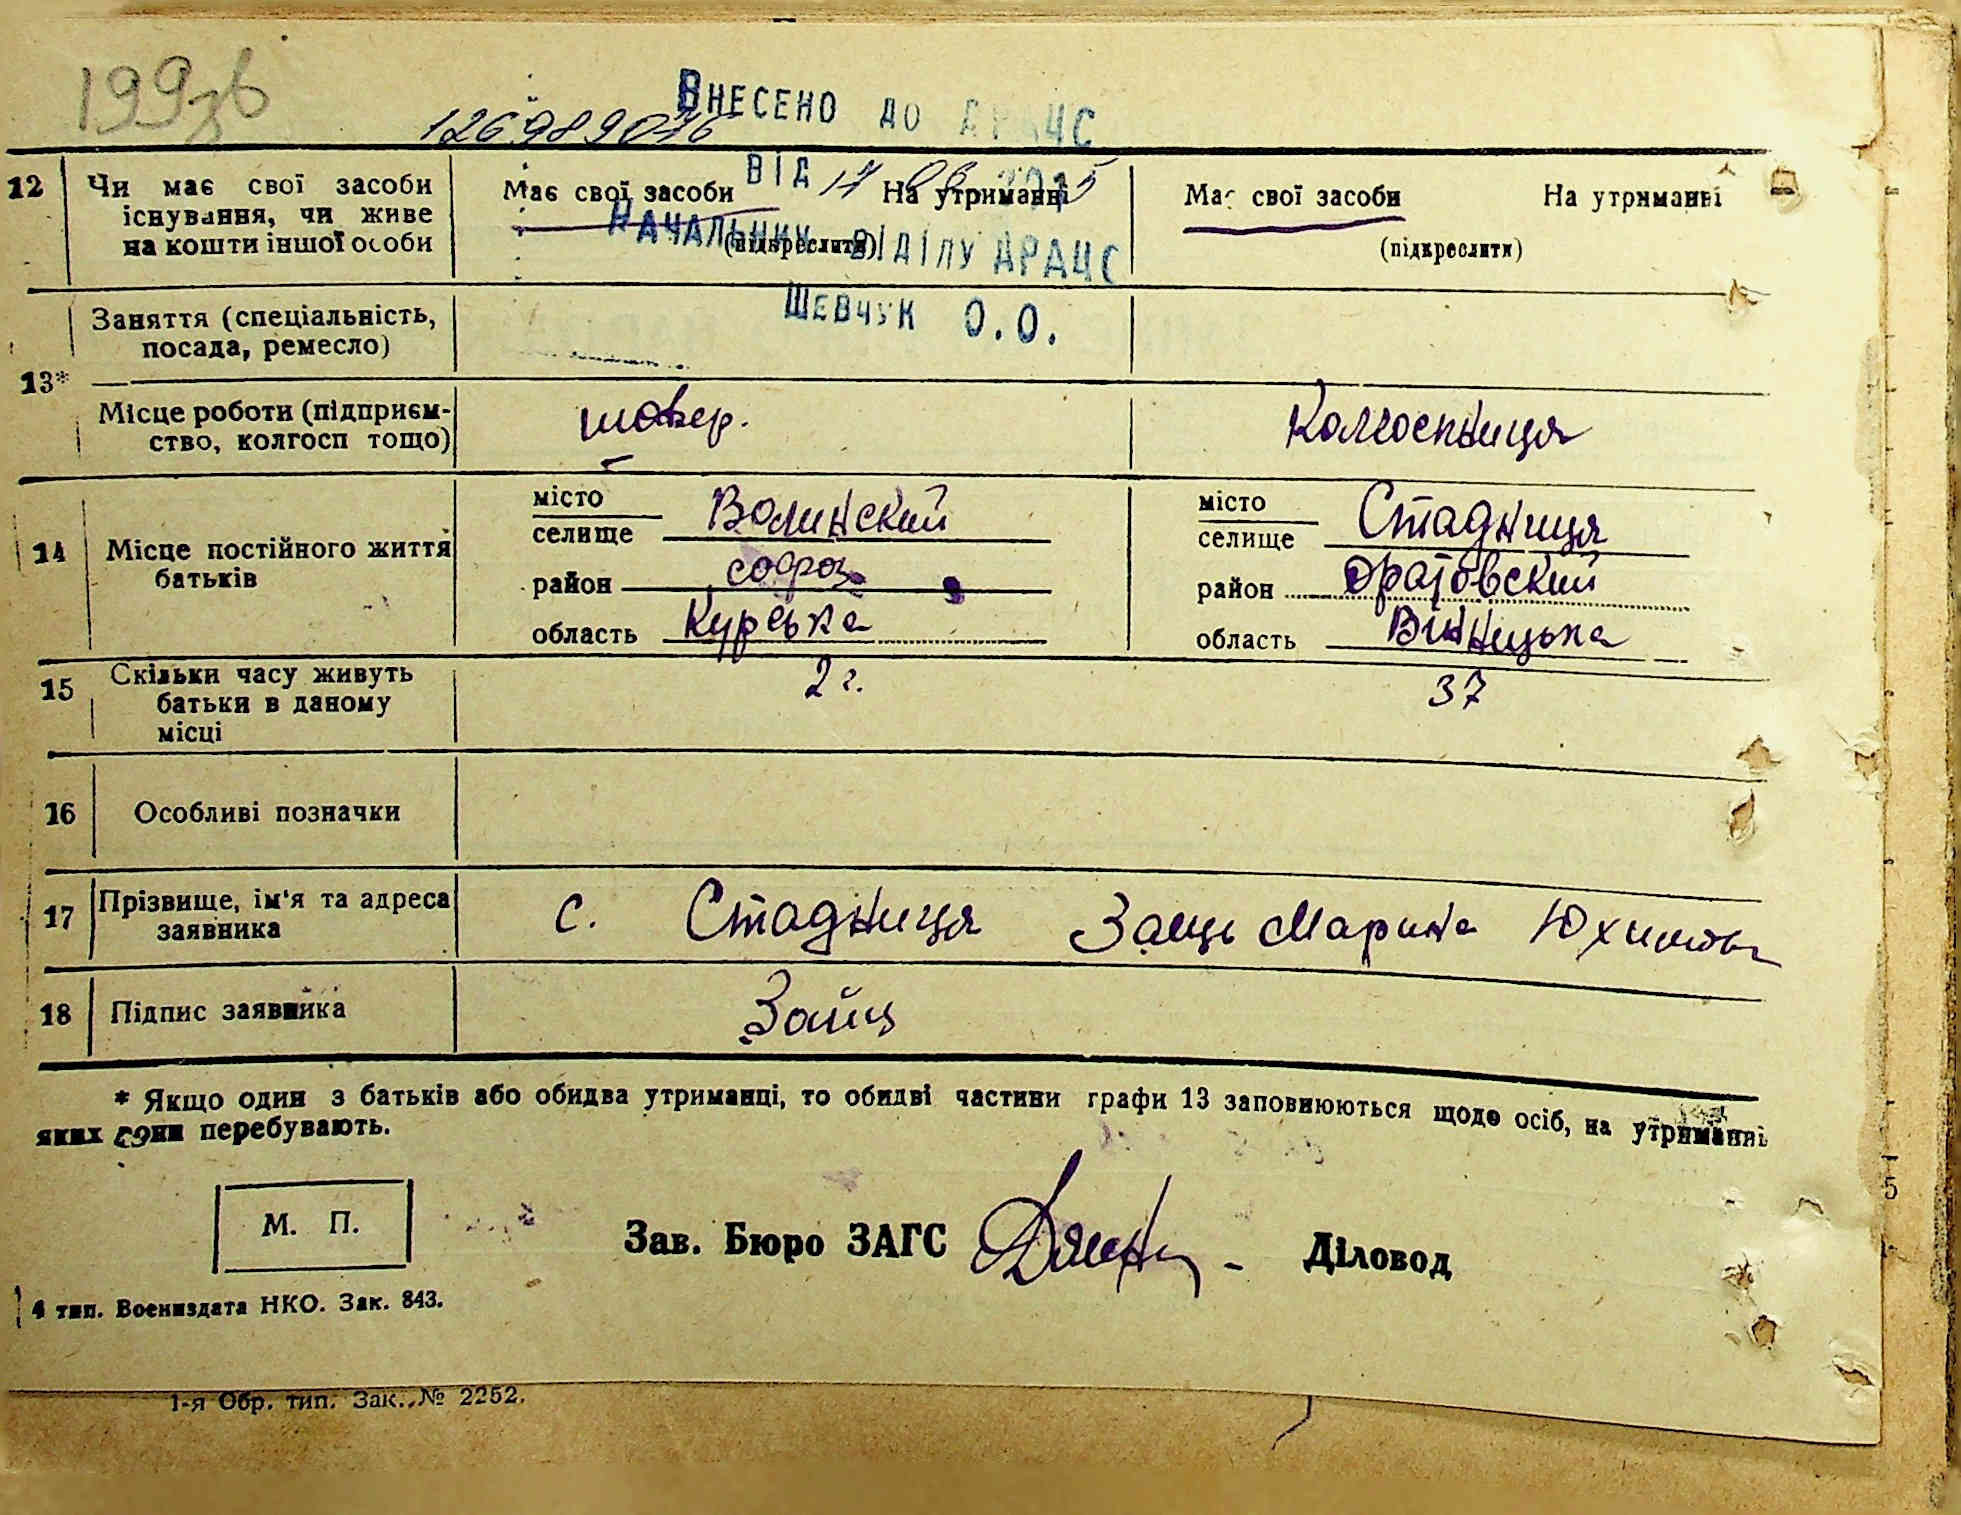 199зв
126989076
Внесено до ДРАЦС
від 17 2015
Начальник відділу ДРАЦС
Шевчук О.О.
12 Чи має свої засоби існування, чи живе на кошти іншої особи
Має свої засоби На утриманні
(підкреслити)
Має свої засоби На утриманні
(підкреслити)
13* Заняття (спеціальність, посада, ремесло)
Місце роботи (підприєм-
ство, колгосп тощо)
шофер.
Колгоспниця
14 Місце постійного життя
батьків
місто
селище Волинский
район
область Курська
місто
селище Стадниця
район Оратовский
область Винницька
15 Скільки часу живуть
батьки в даному
місці
2 г.
37
16 Особливі позначки
17 Прізвище, ім'я та адреса
заявника
с. Стадниця Заиць Марина
18 Підпис заявника
Зайц
* Якщо один з батьків або обидва утриманці, то обидві частини графи 13 заповнюються щодо осіб, на утриманні
яких вони перебувають.
М. П.
Зав. Бюро ЗАГС
Діловод
4 тип. Воениздата НКО. Зак. 843.
1-я Обр. тип. Зак. № 2252.
5